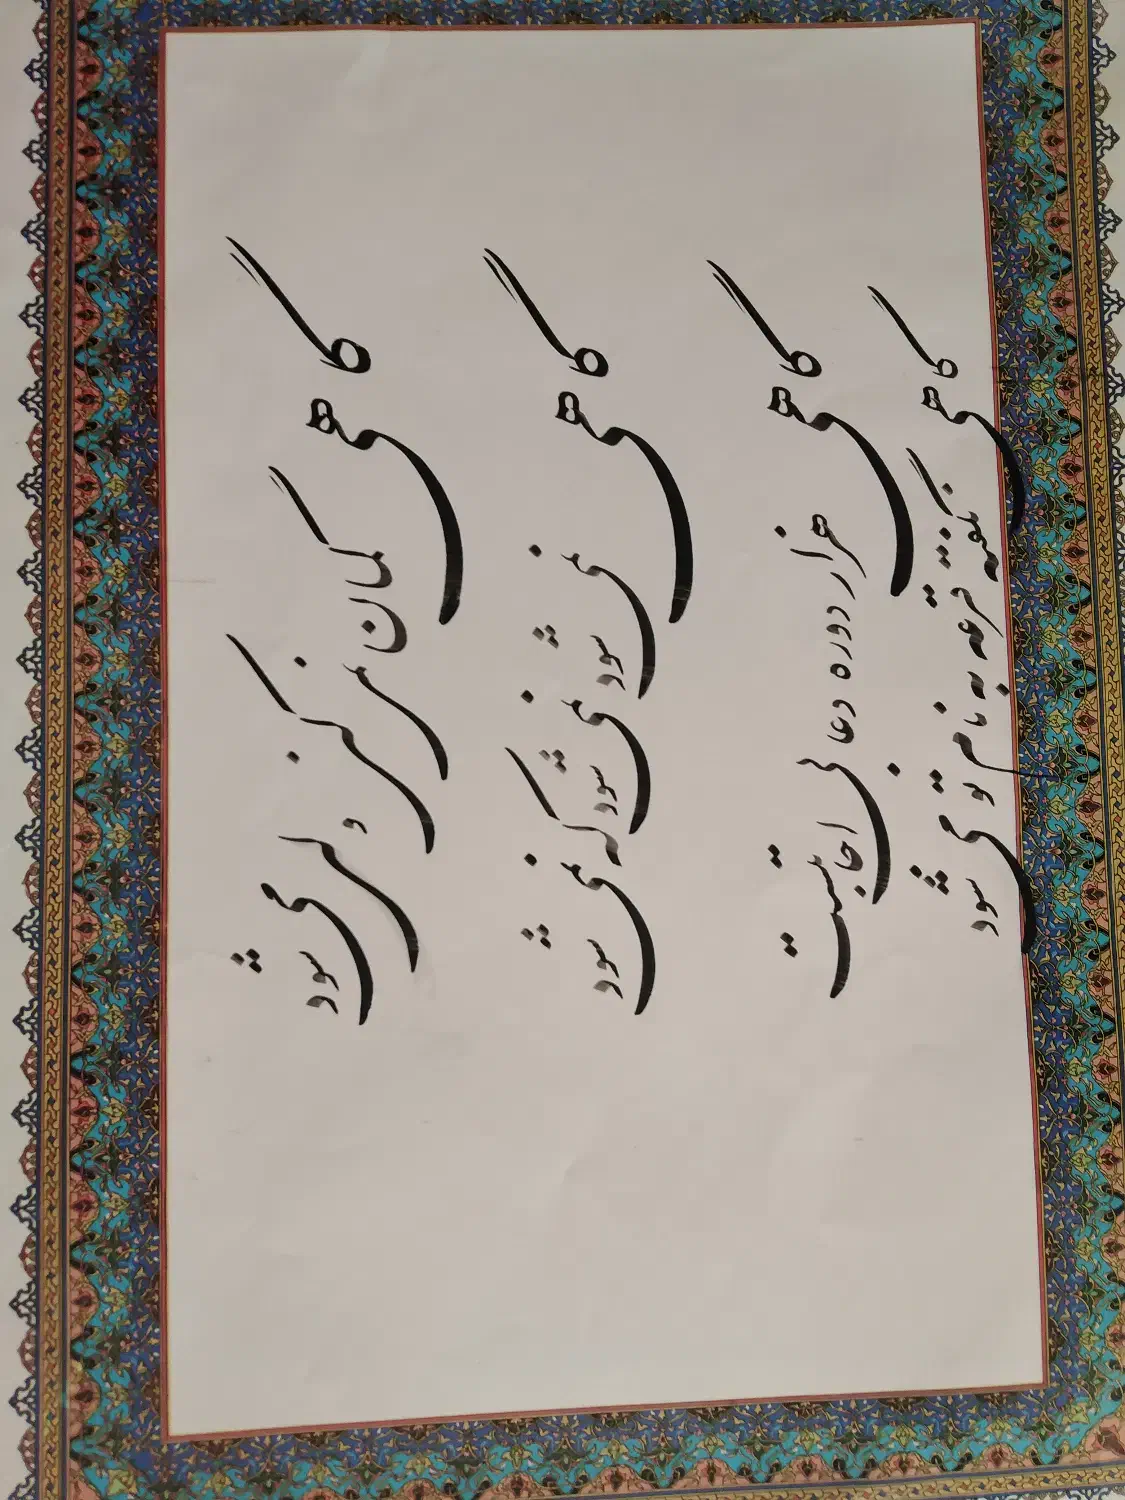 گاهی گمان نمی کنی ولی می شود
گاهی نمی شود نمی شود که نمی شود
گاهی هزار دوره دعا بی اجابتست
گاهی نگفته قرعه به نام تو می شود